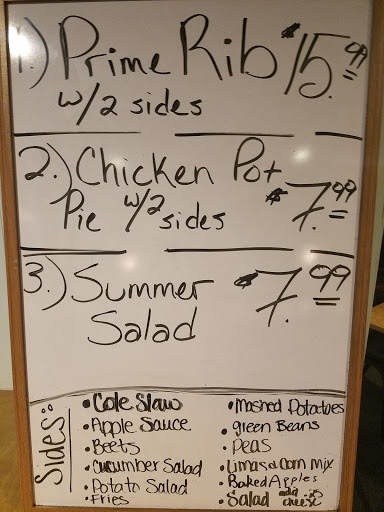 1.) Prime Rib $15.99
w/2 sides
2.) Chicken Pot
Pie w/2 sides $7.99
3.) Summer $7.99
Salad
Sides:
• Cole Slaw
• Apple Sauce
• Beets
• Cucumber Salad
• Potato Salad
• Fries
• Mashed Potatoes
• green Beans
• Peas
• Limas & Corn Mix
• Baked Apples
• Salad add cheese